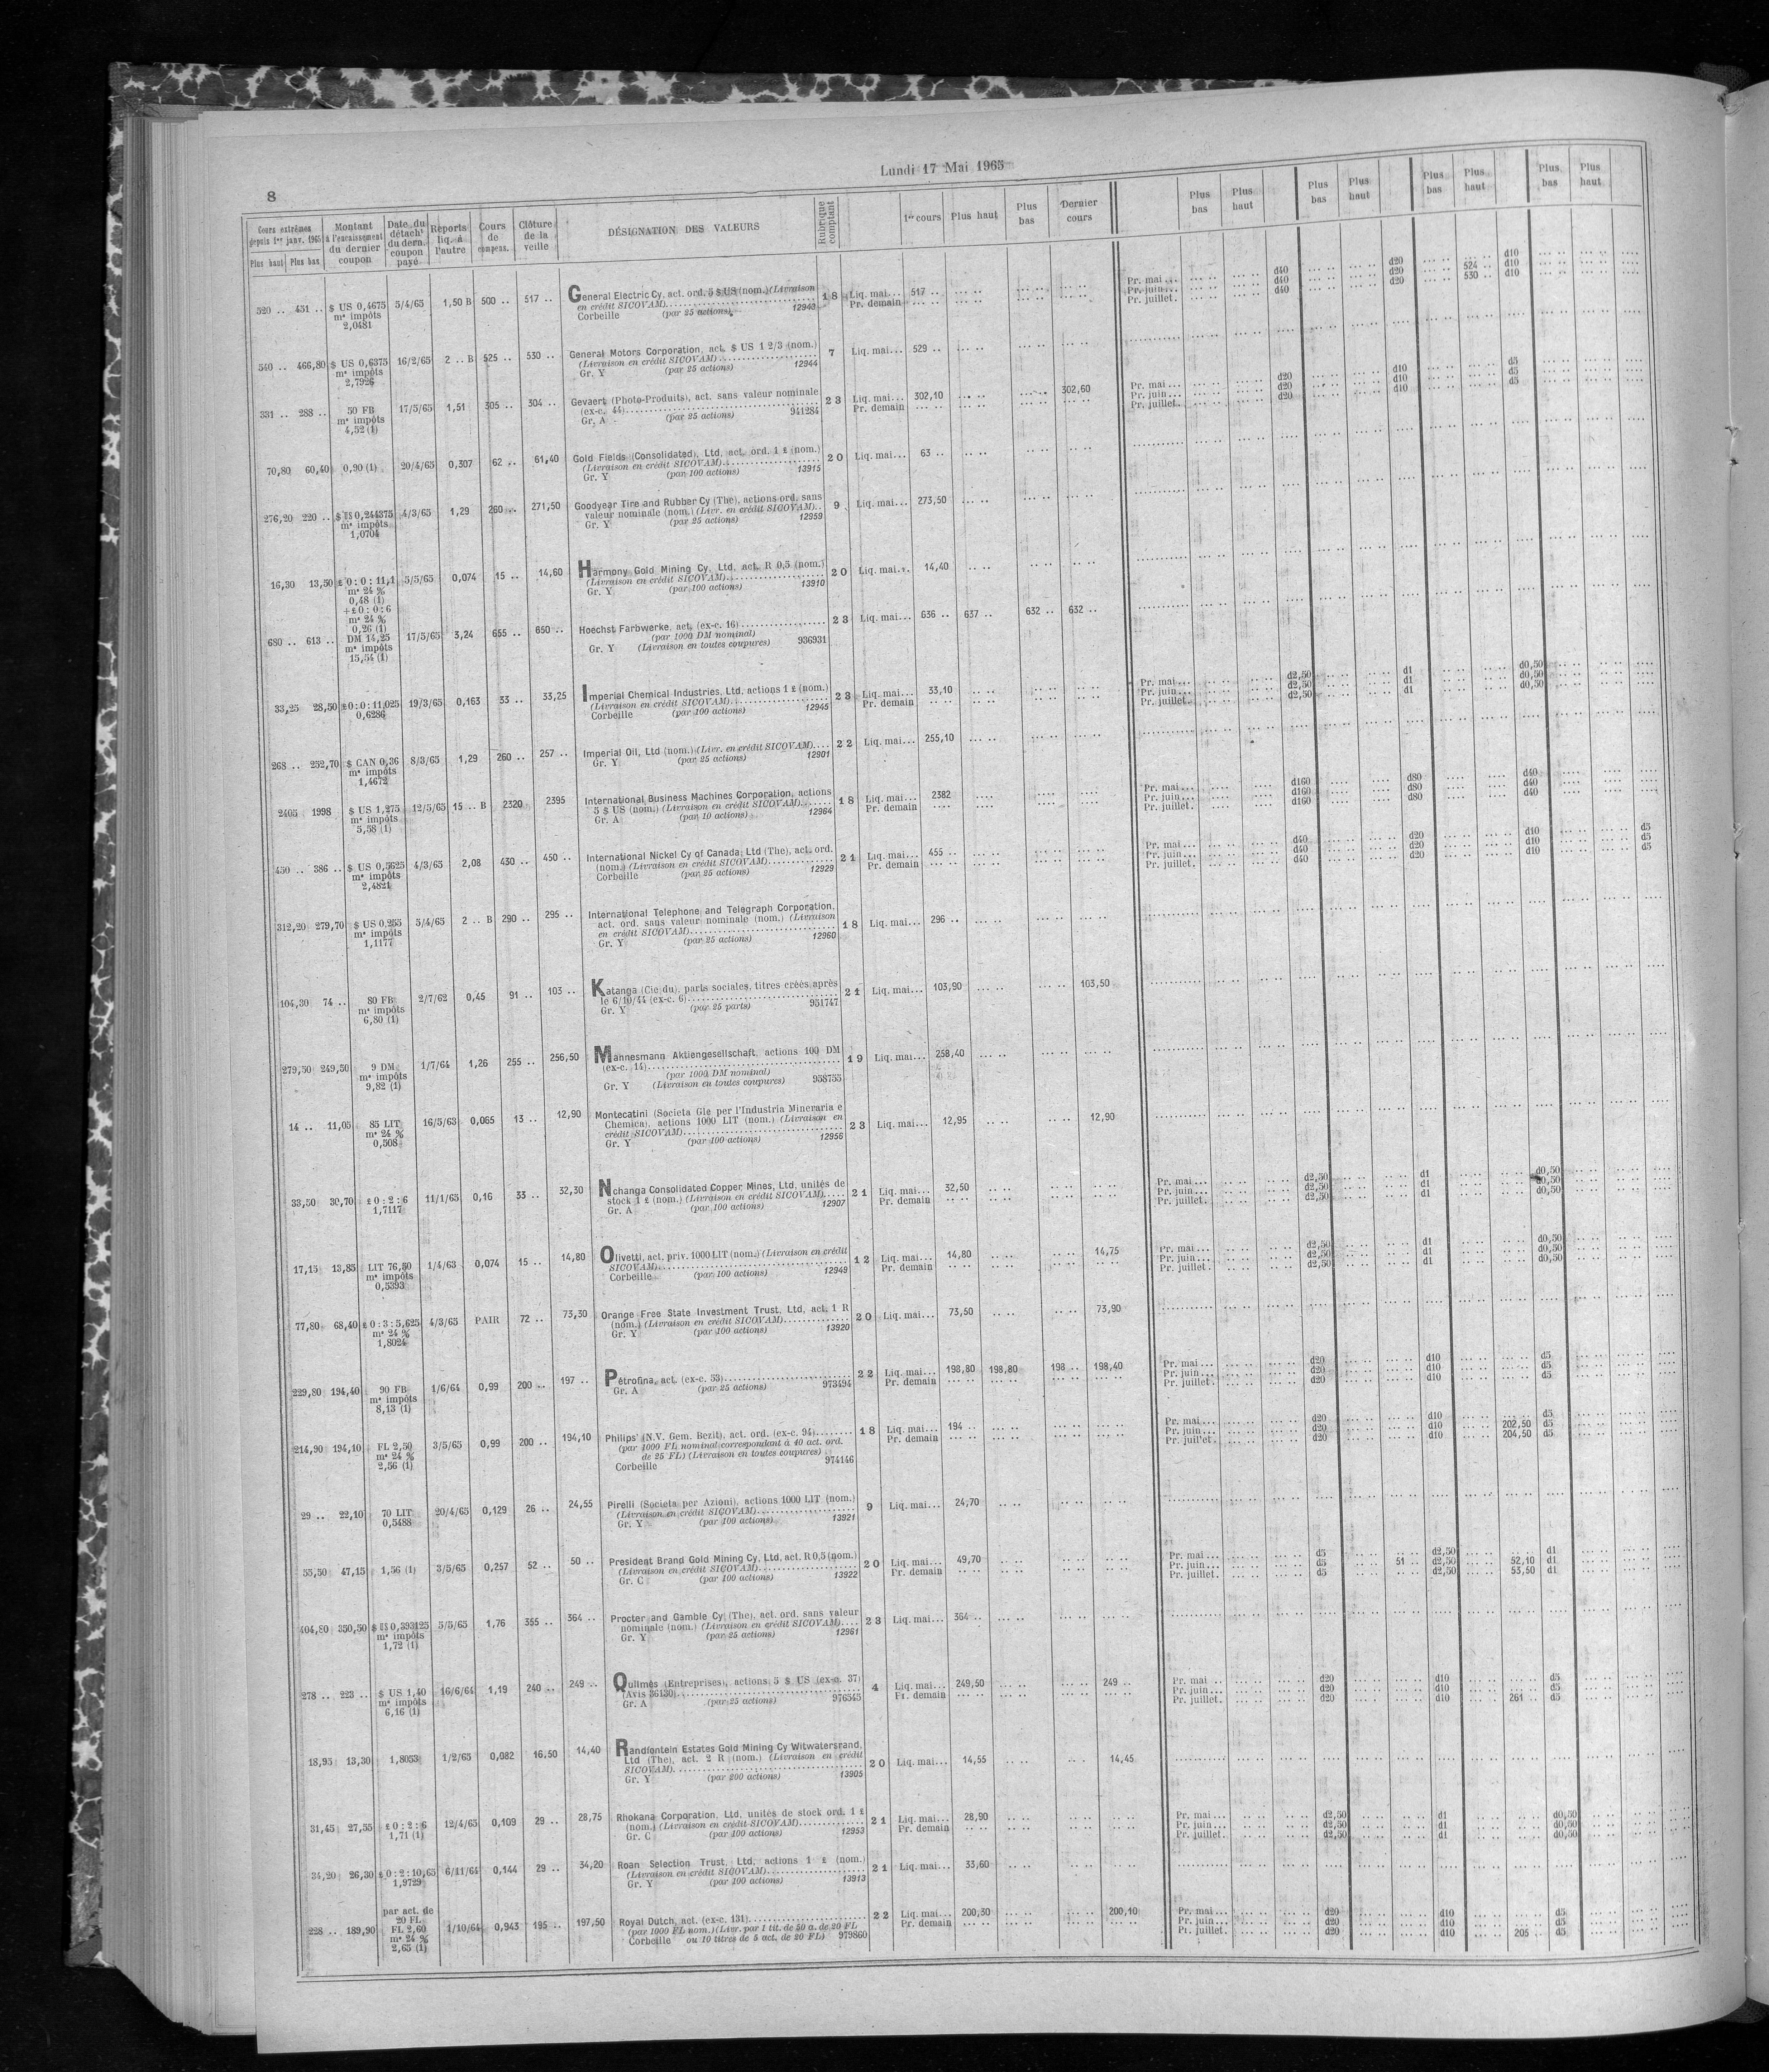 Lundi 17 Mai 1965
8
Cours extrêmes depuis 1er janv. 1965 Plus haut Plus bas | Montant à l'encaissement du dernier coupon | Date du détacht du dern. coupon payé | Reports liq. à l'autre | Cours de compens. | Clôture de la veille | DÉSIGNATION DES VALEURS | Rubrique comptant | 1er cours | Plus haut | Plus bas | Dernier cours | Plus bas | Plus haut | Plus bas | Plus haut | Plus bas | Plus haut | Plus bas | Plus haut
520 .. 451 .. $ US 0,4675 5/4/65 1,50 B 500 .. 517 .. General Electric Cy, act. ord. 5 $ US (nom.) (Livraison 18 Liq. mai... 517 .. Pr. mai... d40 d20 d10
m/ impôts en crédit SICOVAM) 12943 Pr. demain Pr. juin... d40 d20 524 .. d10
2,0481 Corbeille (par 25 actions) Pr. juillet. d40 d20 530 .. d10
540 .. 466,80 $ US 0,6375 16/2/65 2 .. B 525 .. 530 .. General Motors Corporation, act. $ US 1 2/3 (nom.) 7 Liq. mai... 529 ..
m/ impôts (Livraison en crédit SICOVAM) 12944
2,7926 Gr. Y (par 25 actions)
331 .. 288 .. 50 FB 17/5/65 1,51 305 .. 304 .. Gevaert (Photo-Produits), act. sans valeur nominale 23 Liq. mai... 302,10 302,60 Pr. mai... d20 d10 d5
m/ impôts (ex-c. 44) 941284 Pr. demain Pr. juin... d20 d10 d5
4,52 (1) Gr. A (par 25 actions) Pr. juillet. d20 d10 d5
70,80 60,40 0,90 (1) 20/4/65 0,307 62 .. 61,40 Gold Fields (Consolidated), Ltd, act. ord. 1 £ (nom.) 20 Liq. mai... 63 ..
(Livraison en crédit SICOVAM) 13915
Gr. Y (par 100 actions)
276,20 220 .. $ US 0,244375 4/3/65 1,29 260 .. 271,50 Goodyear Tire and Rubber Cy (The), actions ord. sans 9 Liq. mai... 273,50
m/ impôts valeur nominale (nom.) (Livr. en crédit SICOVAM) 12959
1,0704 Gr. Y (par 25 actions)
16,30 13,50 £ 0:0:11,1 5/5/65 0,074 15 .. 14,60 Harmony Gold Mining Cy, Ltd, act. R 0,5 (nom.) 20 Liq. mai... 14,40
m/ 24 % (Livraison en crédit SICOVAM) 13910
0,48 (1) Gr. Y (par 100 actions)
+ £ 0:0:6
m/ 24 %
0,26 (1)
680 .. 613 .. DM 14,25 17/5/65 3,24 655 .. 650 .. Hoechst Farbwerke, act. (ex-c. 16) 23 Liq. mai... 636 .. 637 .. 632 .. 632 ..
m/ impôts (par 1000 DM nominal) 936931
15,54 (1) Gr. Y (Livraison en toutes coupures)
33,25 28,50 £ 0:0:11,025 19/3/65 0,163 33 .. 33,25 Imperial Chemical Industries, Ltd, actions 1 £ (nom.) 23 Liq. mai... 33,10 Pr. mai... d2,50 d1 d0,50
0,6286 (Livraison en crédit SICOVAM) 12945 Pr. demain Pr. juin... d2,50 d1 d0,50
Corbeille (par 100 actions) Pr. juillet. d2,50 d1 d0,50
268 .. 252,70 $ CAN 0,36 8/3/65 1,29 260 .. 257 .. Imperial Oil, Ltd (nom.) (Livr. en crédit SICOVAM) 22 Liq. mai... 255,10
m/ impôts Gr. Y (par 25 actions) 12901
1,4672
2405 1998 $ US 1,275 12/5/65 15 .. B 2320 2395 International Business Machines Corporation, actions 18 Liq. mai... 2382 Pr. mai... d160 d80 d40
m/ impôts 5 $ US (nom.) (Livraison en crédit SICOVAM) 12964 Pr. demain Pr. juin... d160 d80 d40
5,58 (1) Gr. A (par 10 actions) Pr. juillet. d160 d80 d40
450 .. 386 .. $ US 0,5625 4/3/65 2,08 430 .. 450 .. International Nickel Cy of Canada, Ltd (The), act. ord. 21 Liq. mai... 455 .. Pr. mai... d40 d20 d10 d5
m/ impôts (nom.) (Livraison en crédit SICOVAM) 12929 Pr. demain Pr. juin... d40 d20 d10 d5
2,4821 Corbeille (par 25 actions) Pr. juillet. d40 d20 d10 d5
312,20 279,70 $ US 0,255 5/4/65 2 .. B 290 .. 295 .. International Telephone and Telegraph Corporation, 18 Liq. mai... 296 ..
m/ impôts act. ord. sans valeur nominale (nom.) (Livraison
1,1177 en crédit SICOVAM) 12960
Gr. Y (par 25 actions)
104,30 74 .. 80 FB 2/7/62 0,45 91 .. 103 .. Katanga (Cie du), parts sociales, titres créés après 21 Liq. mai... 103,90 103,50
m/ impôts le 6/10/44 (ex-c. 6) 951747
6,80 (1) Gr. Y (par 25 parts)
279,50 249,50 9 DM 1/7/64 1,26 255 .. 256,50 Mannesmann Aktiengesellschaft, actions 100 DM 19 Liq. mai... 258,40
m/ impôts (ex-c. 14)
9,82 (1) (par 1000 DM nominal) 958755
Gr. Y (Livraison en toutes coupures)
14 .. 11,05 85 LIT 16/5/63 0,065 13 .. 12,90 Montecatini (Societa Gle per l'Industria Mineraria e 23 Liq. mai... 12,95 12,90
m/ 24 % Chemica), actions 1000 LIT (nom.) (Livraison en
0,508 crédit SICOVAM) 12956
Gr. Y (par 100 actions)
33,50 30,70 £ 0:2:6 11/1/65 0,16 33 .. 32,30 Nchanga Consolidated Copper Mines, Ltd, unités de 21 Liq. mai... 32,50 Pr. mai... d2,50 d1 d0,50
1,7117 stock 1 £ (nom.) (Livraison en crédit SICOVAM) 12907 Pr. demain Pr. juin... d2,50 d1 d0,50
Gr. A (par 100 actions) Pr. juillet. d2,50 d1 d0,50
17,15 13,85 LIT 76,50 1/4/63 0,074 15 .. 14,80 Olivetti, act. priv. 1000 LIT (nom.) (Livraison en crédit 12 Liq. mai... 14,80 14,75 Pr. mai... d2,50 d1 d0,50
m/ impôts SICOVAM) 12949 Pr. demain Pr. juin... d2,50 d1 d0,50
0,5393 Corbeille (par 100 actions) Pr. juillet. d2,50 d1 d0,50
77,80 68,40 £ 0:3:5,625 4/3/65 PAIR 72 .. 73,30 Orange Free State Investment Trust, Ltd, act. 1 R 20 Liq. mai... 73,50 73,90
m/ 24 % (nom.) (Livraison en crédit SICOVAM) 13920
1,8024 Gr. Y (par 100 actions)
229,80 194,40 90 FB 1/6/64 0,99 200 .. 197 .. Pétrofina, act. (ex-c. 53) 22 Liq. mai... 198,80 198,80 198 .. 198,40 Pr. mai... d20 d10 d5
m/ impôts Gr. A (par 25 actions) 973494 Pr. demain Pr. juin... d20 d10 d5
8,13 (1) Pr. juillet. d20 d10 d5
214,90 194,10 FL 2,50 3/5/65 0,99 200 .. 194,10 Philips' (N.V. Gem. Bezit), act. ord. (ex-c. 94) 18 Liq. mai... 194 .. Pr. mai... d20 d10 d5
m/ 24 % (par 1000 FL nominal correspondant à 40 act. ord. Pr. demain Pr. juin... d20 d10 202,50 d5
2,56 (1) de 25 FL) (Livraison en toutes coupures) 974146 Pr. juil'et. d20 d10 204,50 d5
Corbeille
29 .. 22,10 70 LIT 20/4/65 0,129 26 .. 24,55 Pirelli (Societa per Azioni), actions 1000 LIT (nom.) 9 Liq. mai... 24,70
0,5488 (Livraison en crédit SICOVAM) 13921
Gr. Y (par 100 actions)
55,50 47,15 1,56 (1) 3/5/65 0,257 52 .. 50 .. President Brand Gold Mining Cy, Ltd, act. R 0,5 (nom.) 20 Liq. mai... 49,70 Pr. mai... d5 d2,50 d1
(Livraison en crédit SICOVAM) 13922 Pr. demain Pr. juin... d5 51 .. d2,50 52,10 d1
Gr. C (par 100 actions) Pr. juillet. d5 d2,50 53,50 d1
404,80 350,50 $ US 0,393125 5/5/65 1,76 355 .. 364 .. Procter and Gamble Cy (The), act. ord. sans valeur 23 Liq. mai... 364 ..
m/ impôts nominale (nom.) (Livraison en crédit SICOVAM) 12961
1,72 (1) Gr. Y (par 25 actions)
278 .. 223 .. $ US 1,40 16/6/64 1,19 240 .. 249 .. Quilmès (Entreprises), actions 5 $ US (ex-c. 37) 4 Liq. mai... 249,50 249 .. Pr. mai d20 d10 d5
m/ impôts (Avis 36130) 976545 Pr. demain Pr. juin... d20 d10 d5
6,16 (1) Gr. A (par 25 actions) Pr. juillet. d20 d10 261 .. d5
18,95 13,30 1,8053 1/2/65 0,082 16,50 14,40 Randfontein Estates Gold Mining Cy Witwatersrand, 20 Liq. mai... 14,55 14,45
Ltd (The), act. 2 R (nom.) (Livraison en crédit
SICOVAM) 13905
Gr. Y (par 200 actions)
31,45 27,55 £ 0:2:6 12/4/65 0,109 29 .. 28,75 Rhokana Corporation, Ltd, unités de stock ord. 1 £ 21 Liq. mai... 28,90 Pr. mai... d2,50 d1 d0,50
1,71 (1) (nom.) (Livraison en crédit SICOVAM) 12953 Pr. demain Pr. juin... d2,50 d1 d0,50
Gr. C (par 100 actions) Pr. juillet. d2,50 d1 d0,50
34,20 26,30 £ 0:2:10,65 6/11/64 0,144 29 .. 34,20 Roan Selection Trust, Ltd, actions 1 £ (nom.) 21 Liq. mai... 33,60
1,9729 (Livraison en crédit SICOVAM) 13913
Gr. Y (par 100 actions)
par act. de
20 FL
228 .. 189,90 FL 2,60 1/10/64 0,943 195 .. 197,50 Royal Dutch, act. (ex-c. 131) 22 Liq. mai... 200,30 200,10 Pr. mai... d20 d10 d5
m/ 24 % (par 1000 FL nom.) (Livr. par 1 tit. de 50 a. de 20 FL Pr. demain Pr. juin... d20 d10 d5
2,65 (1) Corbeille ou 10 titres de 5 act. de 20 FL) 979860 Pr. juillet. d20 d10 205 .. d5